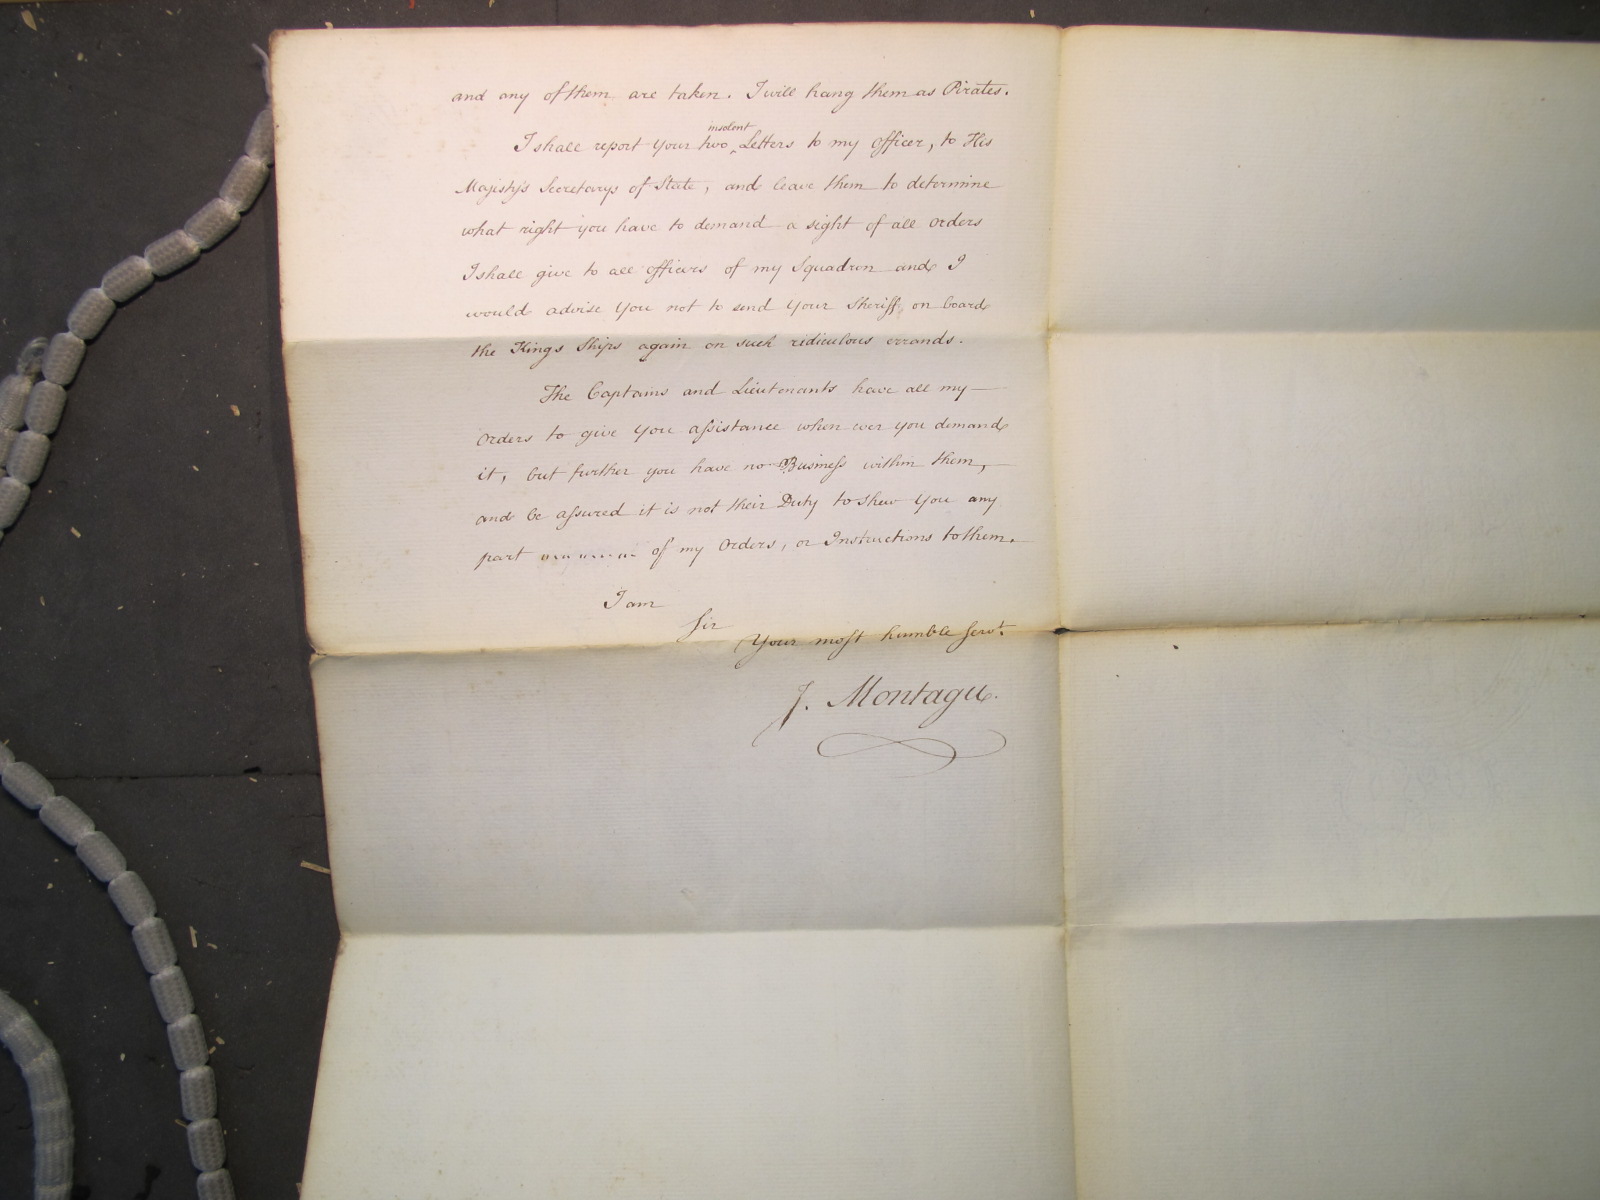 and any of them are taken. I will hang them as Pirates.
I shall report your two ‸ insolent Letters to my officer, to His
Majesty's Secretarys of State, and leave them to determine
what right you have to demand a sight of all orders
I shall give to all officers of my Squadron and I
would advise you not to send your Sheriff on board
the Kings Ships again on such ridiculous errands.
The Captains and Lieutenants have all my —
Orders to give you assistance when ever you demand
it, but further you have no Business within them, —
and be assured it is not their Duty to shew you any
part of my Orders, or Instructions to them.
I am
Sir
Your most humble Servt
J. Montagu.